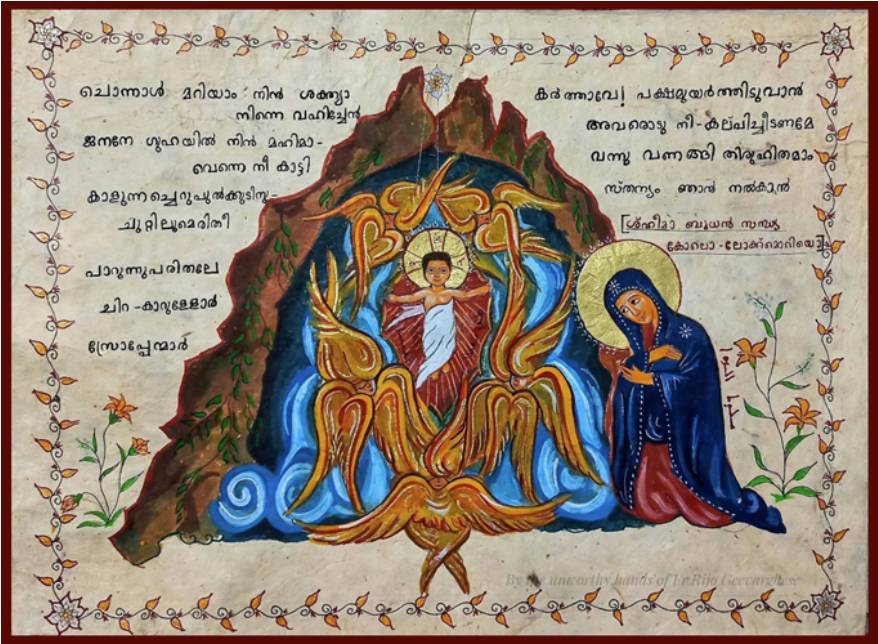 ചൊന്നാൾ മറിയാം നിൻ ശക്ത്യാ
നിന്നെ വഹിച്ചേൻ
ജനനേ ഗുഹയിൽ നിൻ മഹിമാ-
വെന്നെ നീ കാട്ടി
കാളുന്നച്ചെറുപുൽക്കുടിനു-
ചുറ്റിലുമെരിതീ
പാറുന്നുപരിതലേ
ചിറ-കാറുള്ളോർ
സ്രോപ്പേന്മാർ
കർത്താവേ! പക്ഷമുയർത്തിടുവാൻ
അവരൊടു നീ-കല്പിച്ചീടണമേ
വന്നു വണങ്ങി തിരുഹിതമാം
സ്തന്യം ഞാൻ നൽകുൻ
[ശ്ഹീമാ ബുധൻ സന്ധ്യ
കോലൊ-ലോക്മൊറിയൊ]
By the unworthy hands of Fr Rijo Geevarghese